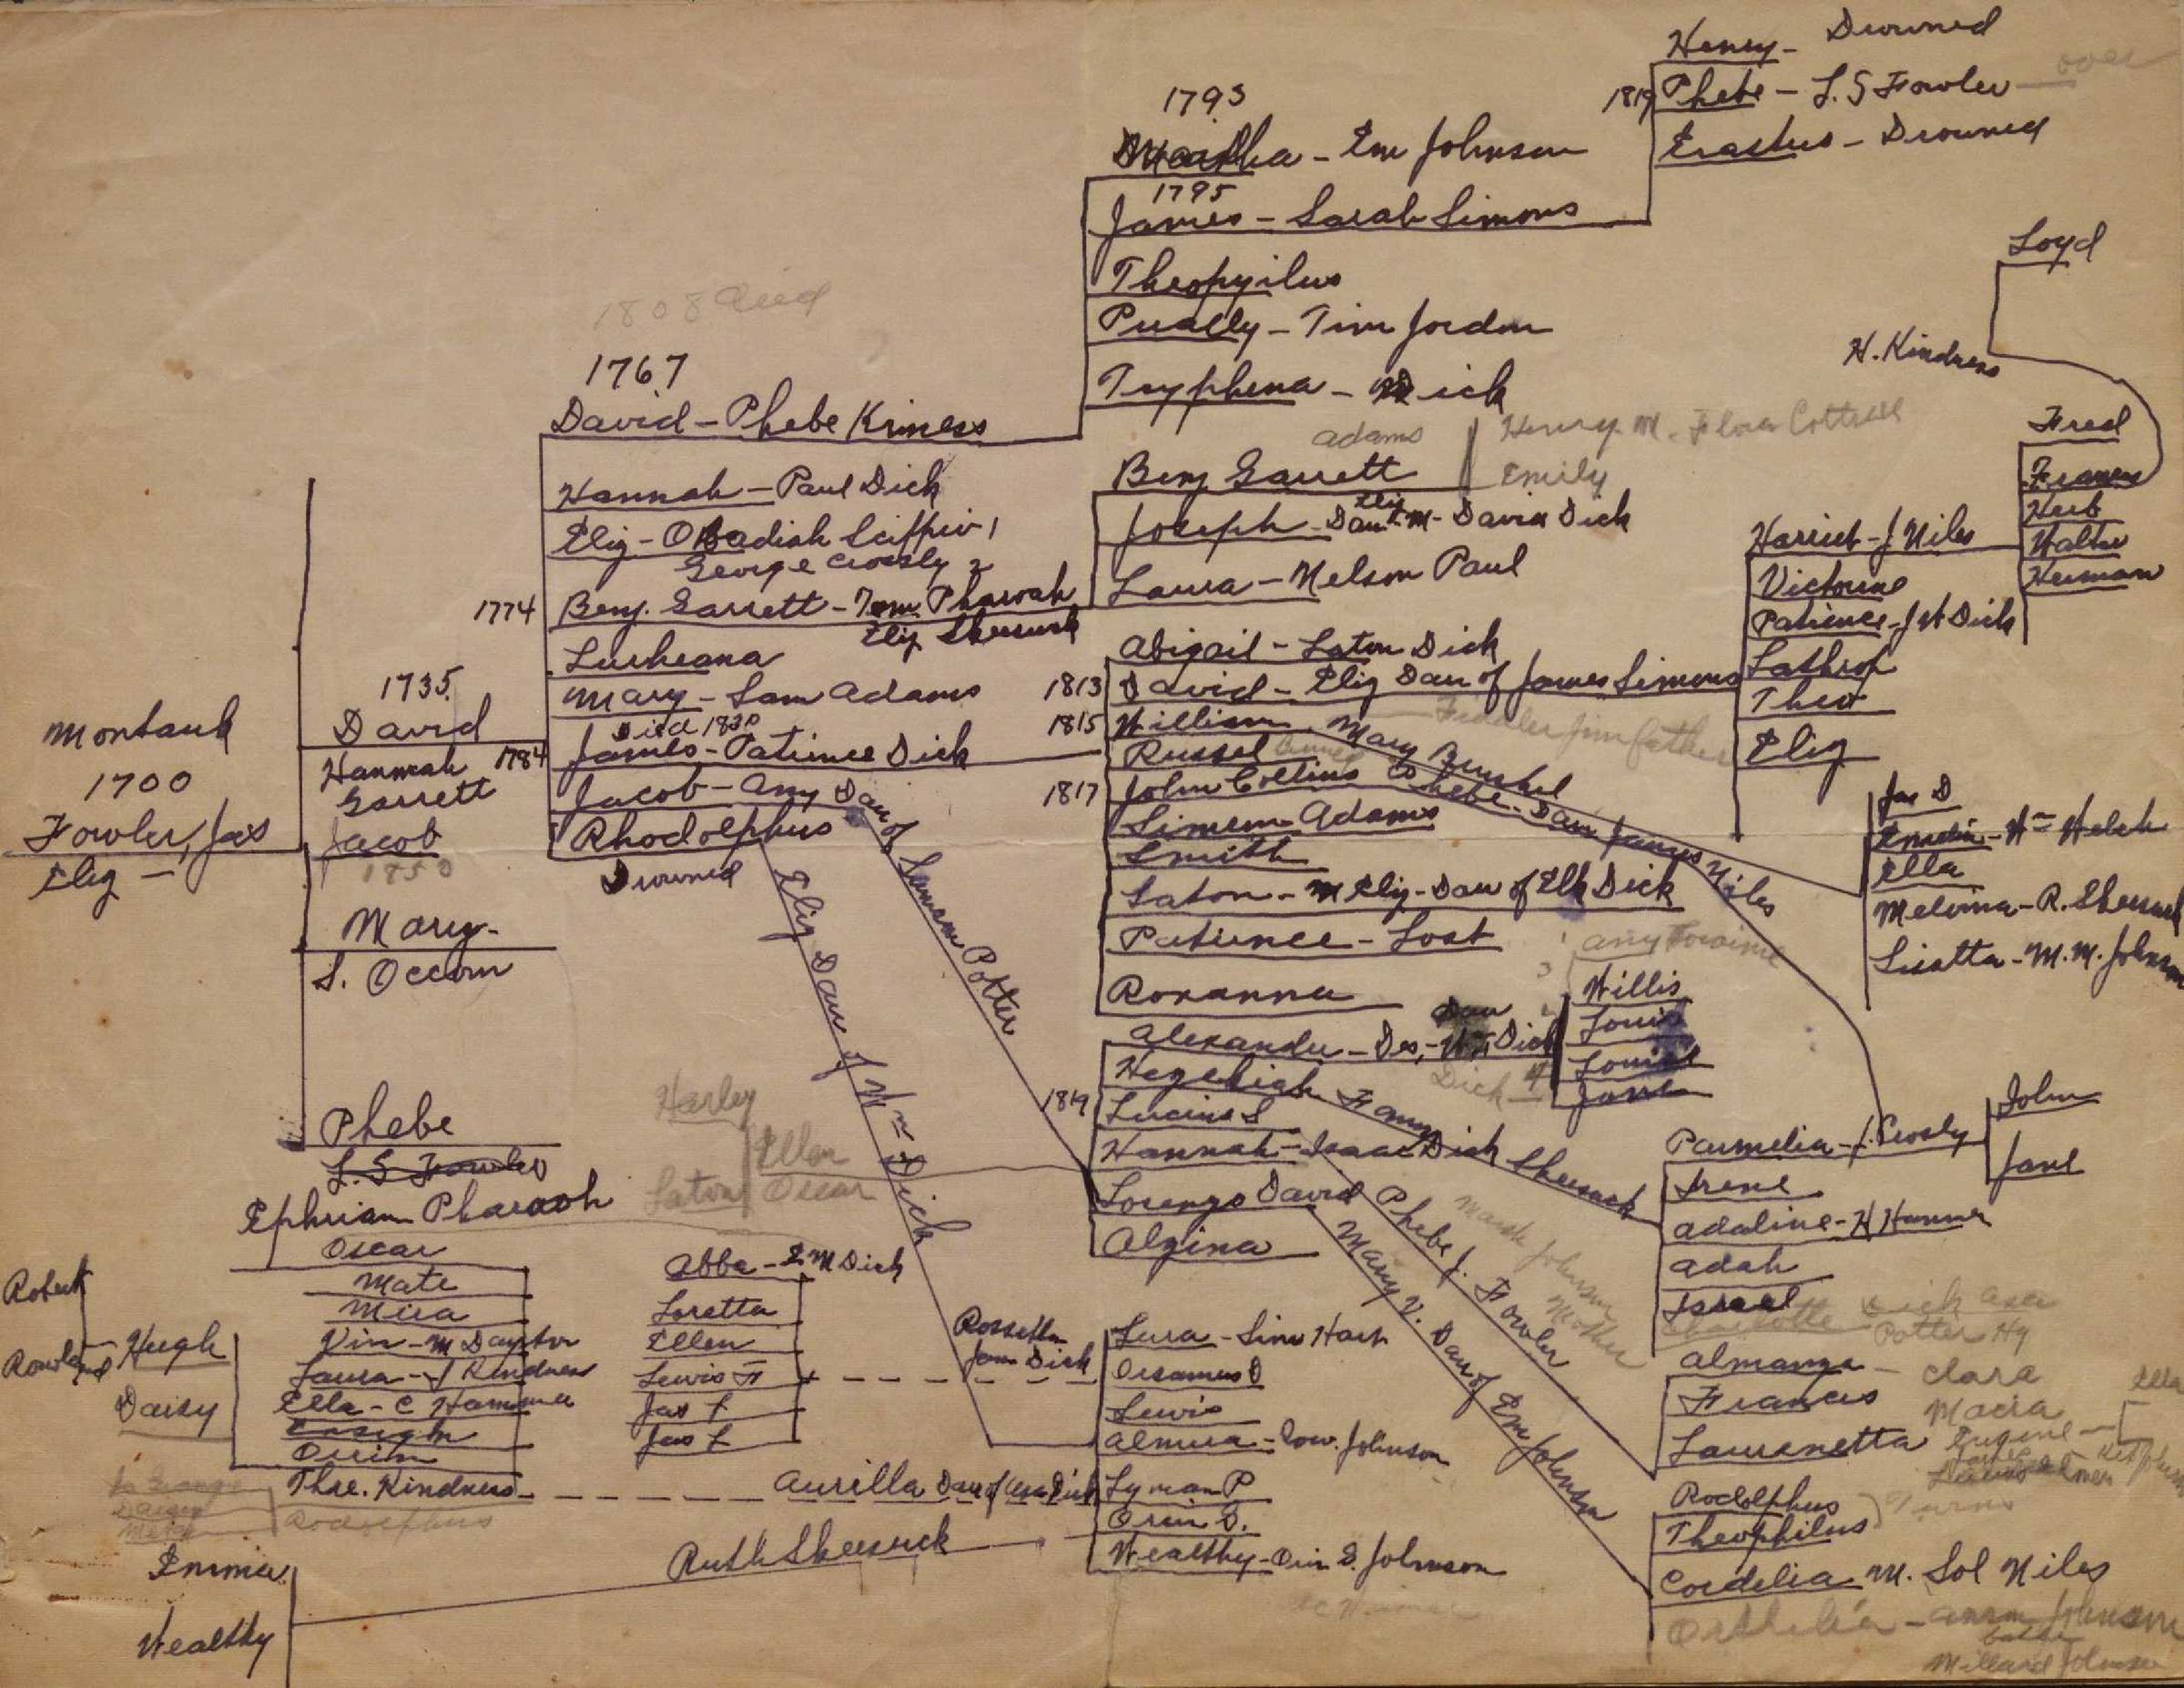 Montauk
1700
Fowler, Jas
Eliz -
1735
David
Hannah
Garrett
Jacob
1850
Mary -
S. Occum
Phebe
L. S Fowler
Ephriam Pharaoh
1808 died
1767
David - Phebe Kiness
Hannah - Paul Dick
Eliz - Obadiah Scippio 1
George Crossly 2
1774
Benj. Garrett - Tem Pharoah
Eliz Sheesuck
Lucheana
Mary - Sam Adams
Died 1830
1784
James - Patience Dick
Jacob - Amy Dau of Samson Potter
Rhodolphus
Drowned
Eliz Dau of Wm Dick
1793
Martha - Em Johnson
1795
James - Sarah Simons
Theopyilus
Pually - Tim Jordan
Tryphena - Dick
1819
Henry - Drowned
Phebe - L. S Fowler
over
Erastus - Drowned
Adams
Benj Garrett
Henry M. Flora Cottrell
Emily
Joseph - Dau
Eliz
M - David Dick
Laura - Nelson Paul
Abigail - Laton Dick
1813
David - Eliz Dau of James Simons
1815
William
Mary Bunkel
Fiddler Jim father
Russel
1817
John Collins
Phebe - Dau James Niles
Simeon Adams
Smith
Laton - M Eliz - Dau of Elk Dick
Patience - Lost
Roxanna
Loyd
H. Kindness
Fred
Frances
Herb
Walter
Herman
Harriet - J Niles
Victorine
Patience - J H Dick
Lathrop
Theo
Eliz
Jas D
Emelin - Wm Welch
Ella
Melvina - R. Sheesuck
Lisatta - M. M. Johnson
Alexander - Des.
Dau
Wm Dick
Dick
Amy
Willis
Louis
Louisa
Jane
Hezekiah
Fanny Sheesuck
1819
Lucius S
Hannah - Isaac Dick
Lorenzo David
Phebe J. Fowler
Mary V. Dau of Em Johnson
Alzina
Parmelia - J. Crosly
John
Jane
Irene
Adaline - H Hammer
Adah
Israel
Charlotte
Dick Asa
Potter Hy
Marsh Johnson
Mother
Almanza
Francis
Lauranetta
Clara
Maria
Eugene
Ella
Rodolphus
Theophilus
Twins
Cordelia M. Sol Niles
Orthelia - Johnson
Millard Johnson
Harley
Ellen
Laton
Oscar
Oscar
Mate
Mira
Vin - M Dayton
Laura - J Kindness
Ella - C Hammer
Ensign
Orrin
Thre. Kindness
Robert
Rowland
Hugh
Daisy
Rodolphus
Abba - L M Dick
Loretta
Ellen
Lewis F
Jas L
Jas L
Rossetta
Jam Dick
Aurilla Dau of Asa Dick
Lura - Sim Hart
Orsamus D
Lewis
Almira - Row. Johnson
Lyman P
Orin D.
Wealthy - Orin D. Johnson
Ruth Sheesuck
Emma
Wealthy